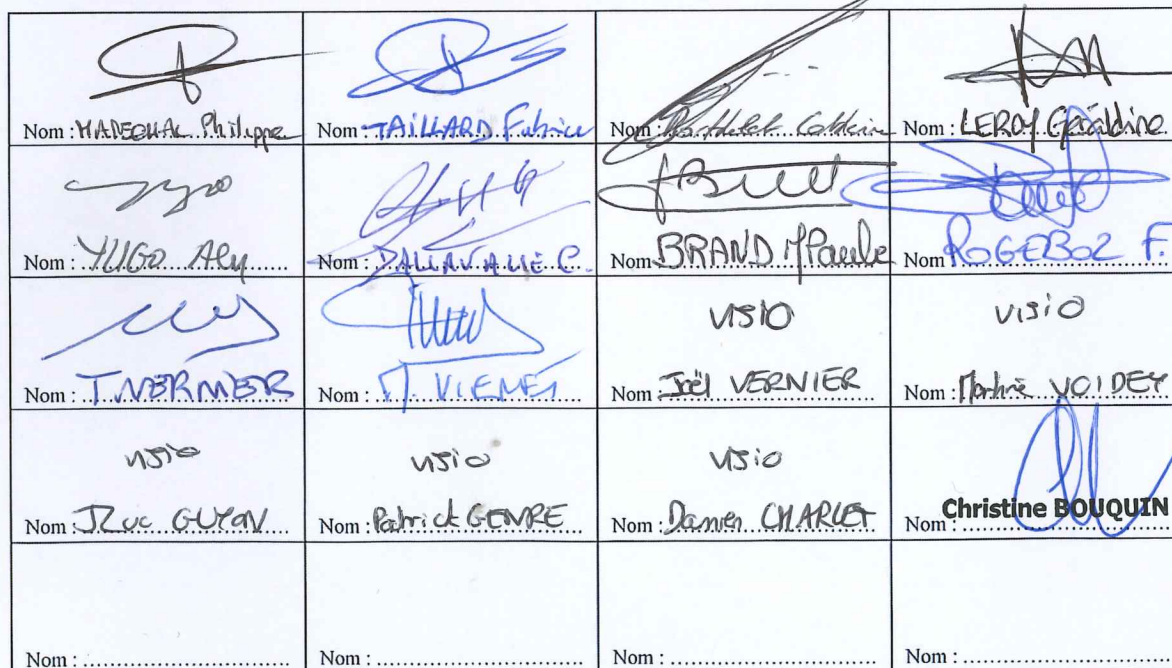 Nom : MARECHAL Philippe Nom : TAILLARD Fabrice Nom : Barthelet Catherine Nom : LEROY Géraldine
Nom : YUGO Aly Nom : DALLAVALLE C. Nom BRAND M Paule Nom ROGEBOZ F.
visio visio
Nom : T. VERMER Nom : M. VIENET Nom : Joël VERNIER Nom : Martine VOIDEY
visio visio visio
Nom : JLuc GUYON Nom : Patrick GENRE Nom : Damien CHARLET Nom : Christine BOUQUIN
Nom : Nom : Nom : Nom :